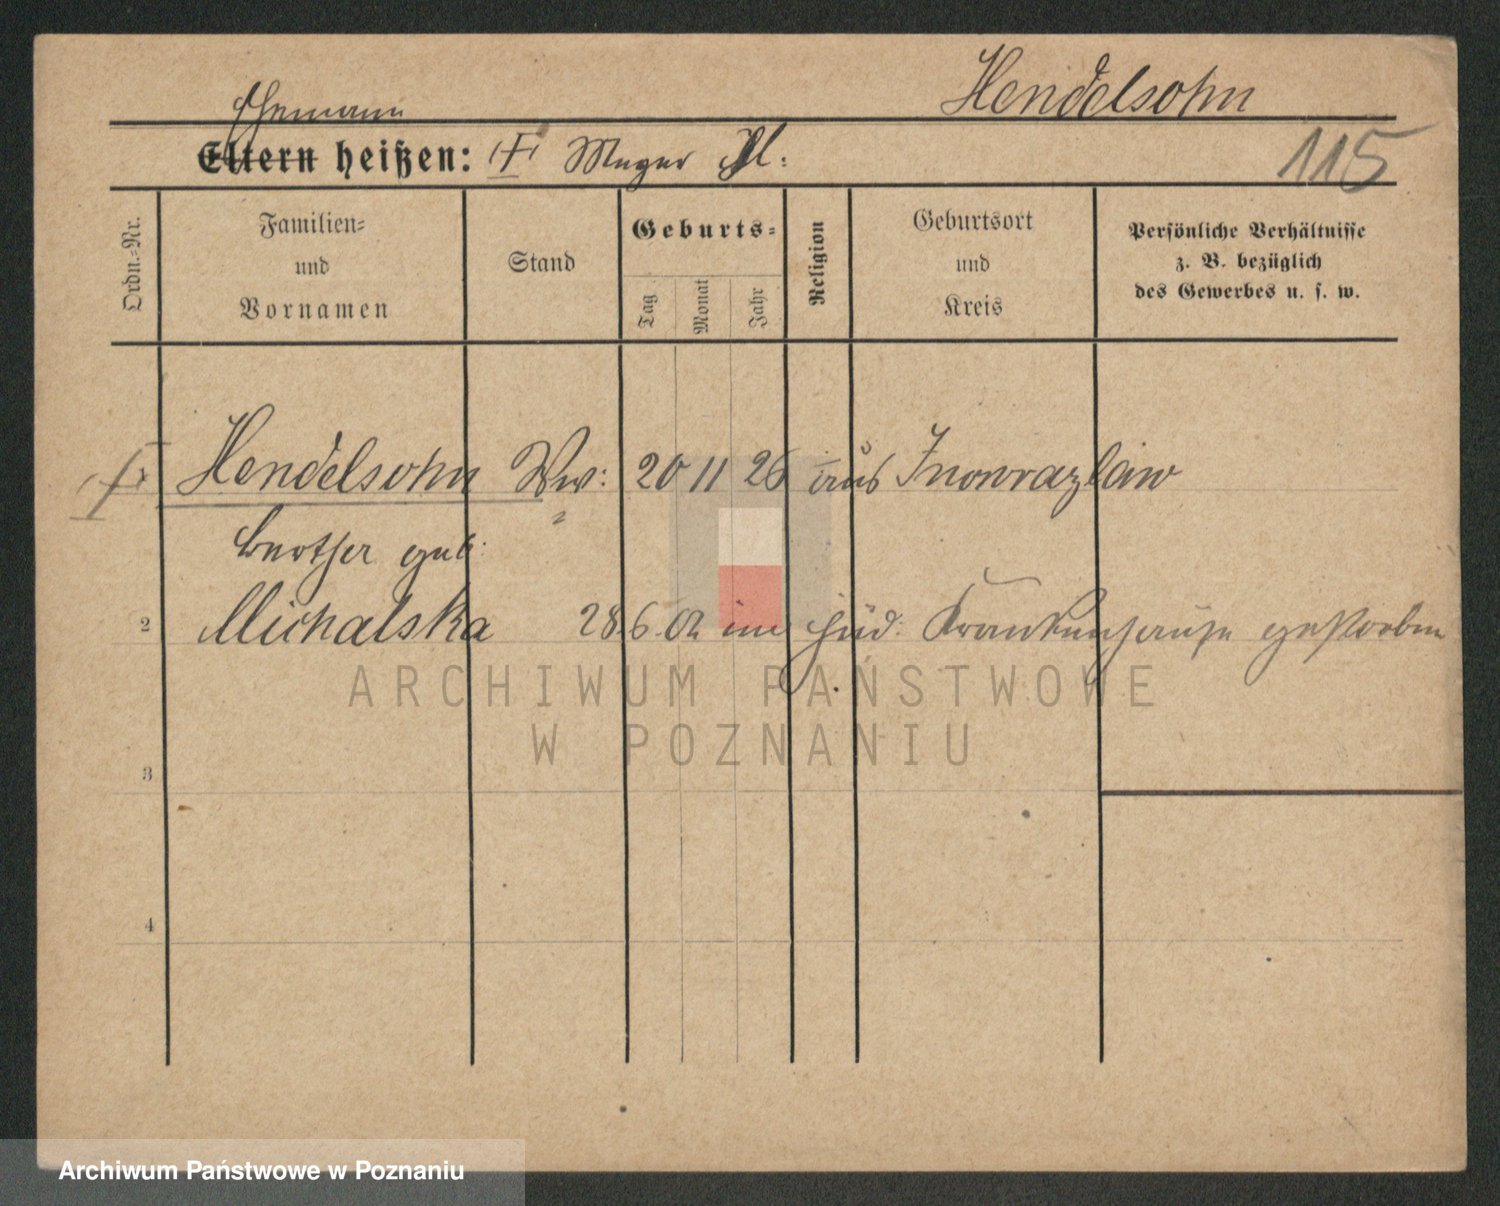 Hendelsohn
Ehemann
Eltern heißen: (†) Meyer H.
115
Ordn.-Nr.
Familien-
und
Vornamen
Stand
Geburts-
Tag
Monat
Jahr
Religion
Geburtsort
und
Kreis
Persönliche Verhältnisse
z. B. bezüglich
des Gewerbes u. s. w.
† Hendelsohn Ww: 20 11 26 aus Inowrazlaw
geb:
2 Michalska 28 6. 02 im jüd. Krankenhause gestorben
ARCHIWUM PAŃSTWOWE
W POZNANIU
3
4
Archiwum Państwowe w Poznaniu